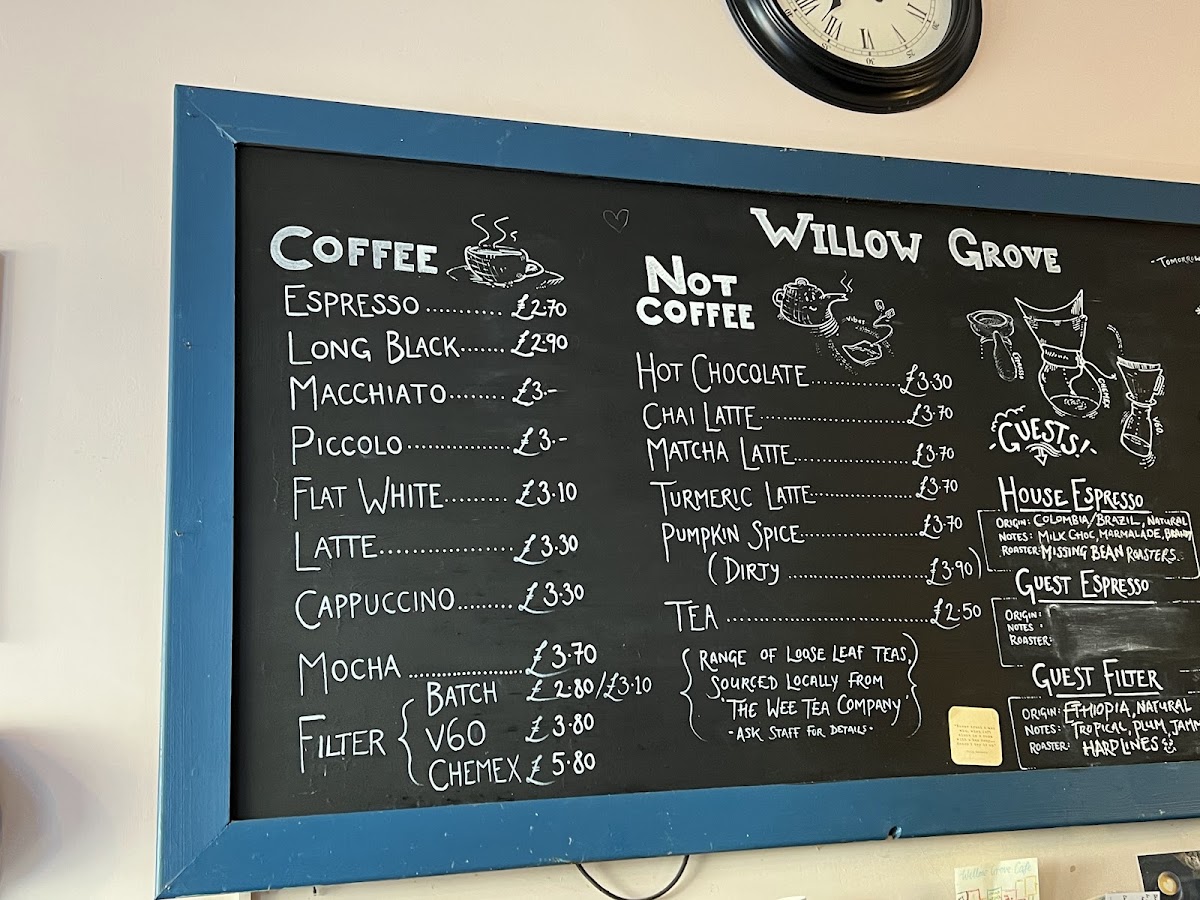 WILLOW GROVE
COFFEE
ESPRESSO .......... £2.70
LONG BLACK....... £2.90
MACCHIATO........ £3.-
PICCOLO .............. £3.-
FLAT WHITE......... £3.10
LATTE.................. £3.30
CAPPUCCINO........ £3.30
MOCHA ................ £3.70
FILTER
BATCH £2.80/£3.10
V60 £3.80
CHEMEX £5.80
NOT
COFFEE
HOT CHOCOLATE............. £3.30
CHAI LATTE..................... £3.70
MATCHA LATTE................ £3.70
TURMERIC LATTE.............. £3.70
PUMPKIN SPICE................ £3.70
(DIRTY ..................... £3.90)
TEA .............................. £2.50
{RANGE OF LOOSE LEAF TEAS,
SOURCED LOCALLY FROM
'THE WEE TEA COMPANY'
- ASK STAFF FOR DETAILS -}
-TOMORROW
CHEMEX
V60
GUESTS!
HOUSE ESPRESSO
ORIGIN: COLOMBIA/BRAZIL, NATURAL
NOTES: MILK CHOC, MARMALADE, BRANDY
ROASTER: MISSING BEAN ROASTERS.
GUEST ESPRESSO
ORIGIN:
NOTES:
ROASTER:
GUEST FILTER
ORIGIN: ETHIOPIA, NATURAL
NOTES: TROPICAL, PLUM, JAMM
ROASTER: HARD LINES
Willow Grove Cafe